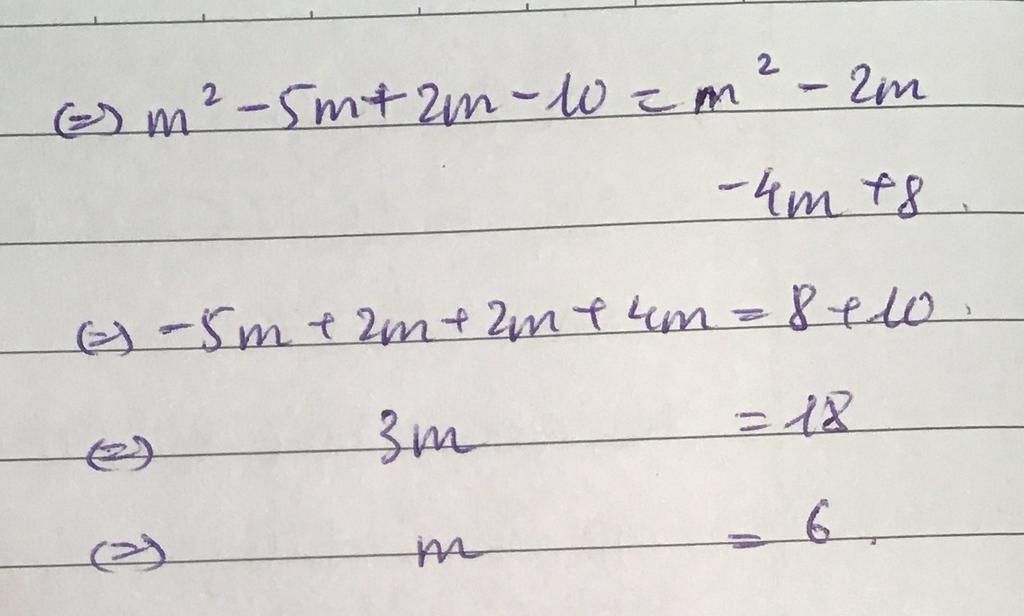 ⇔ m² - 5m + 2m - 10 = m² - 2m
- 4m + 8.
⇔ - 5m + 2m + 2m + 4m = 8 + 10.
⇔ 3m = 18
⇔ m = 6.